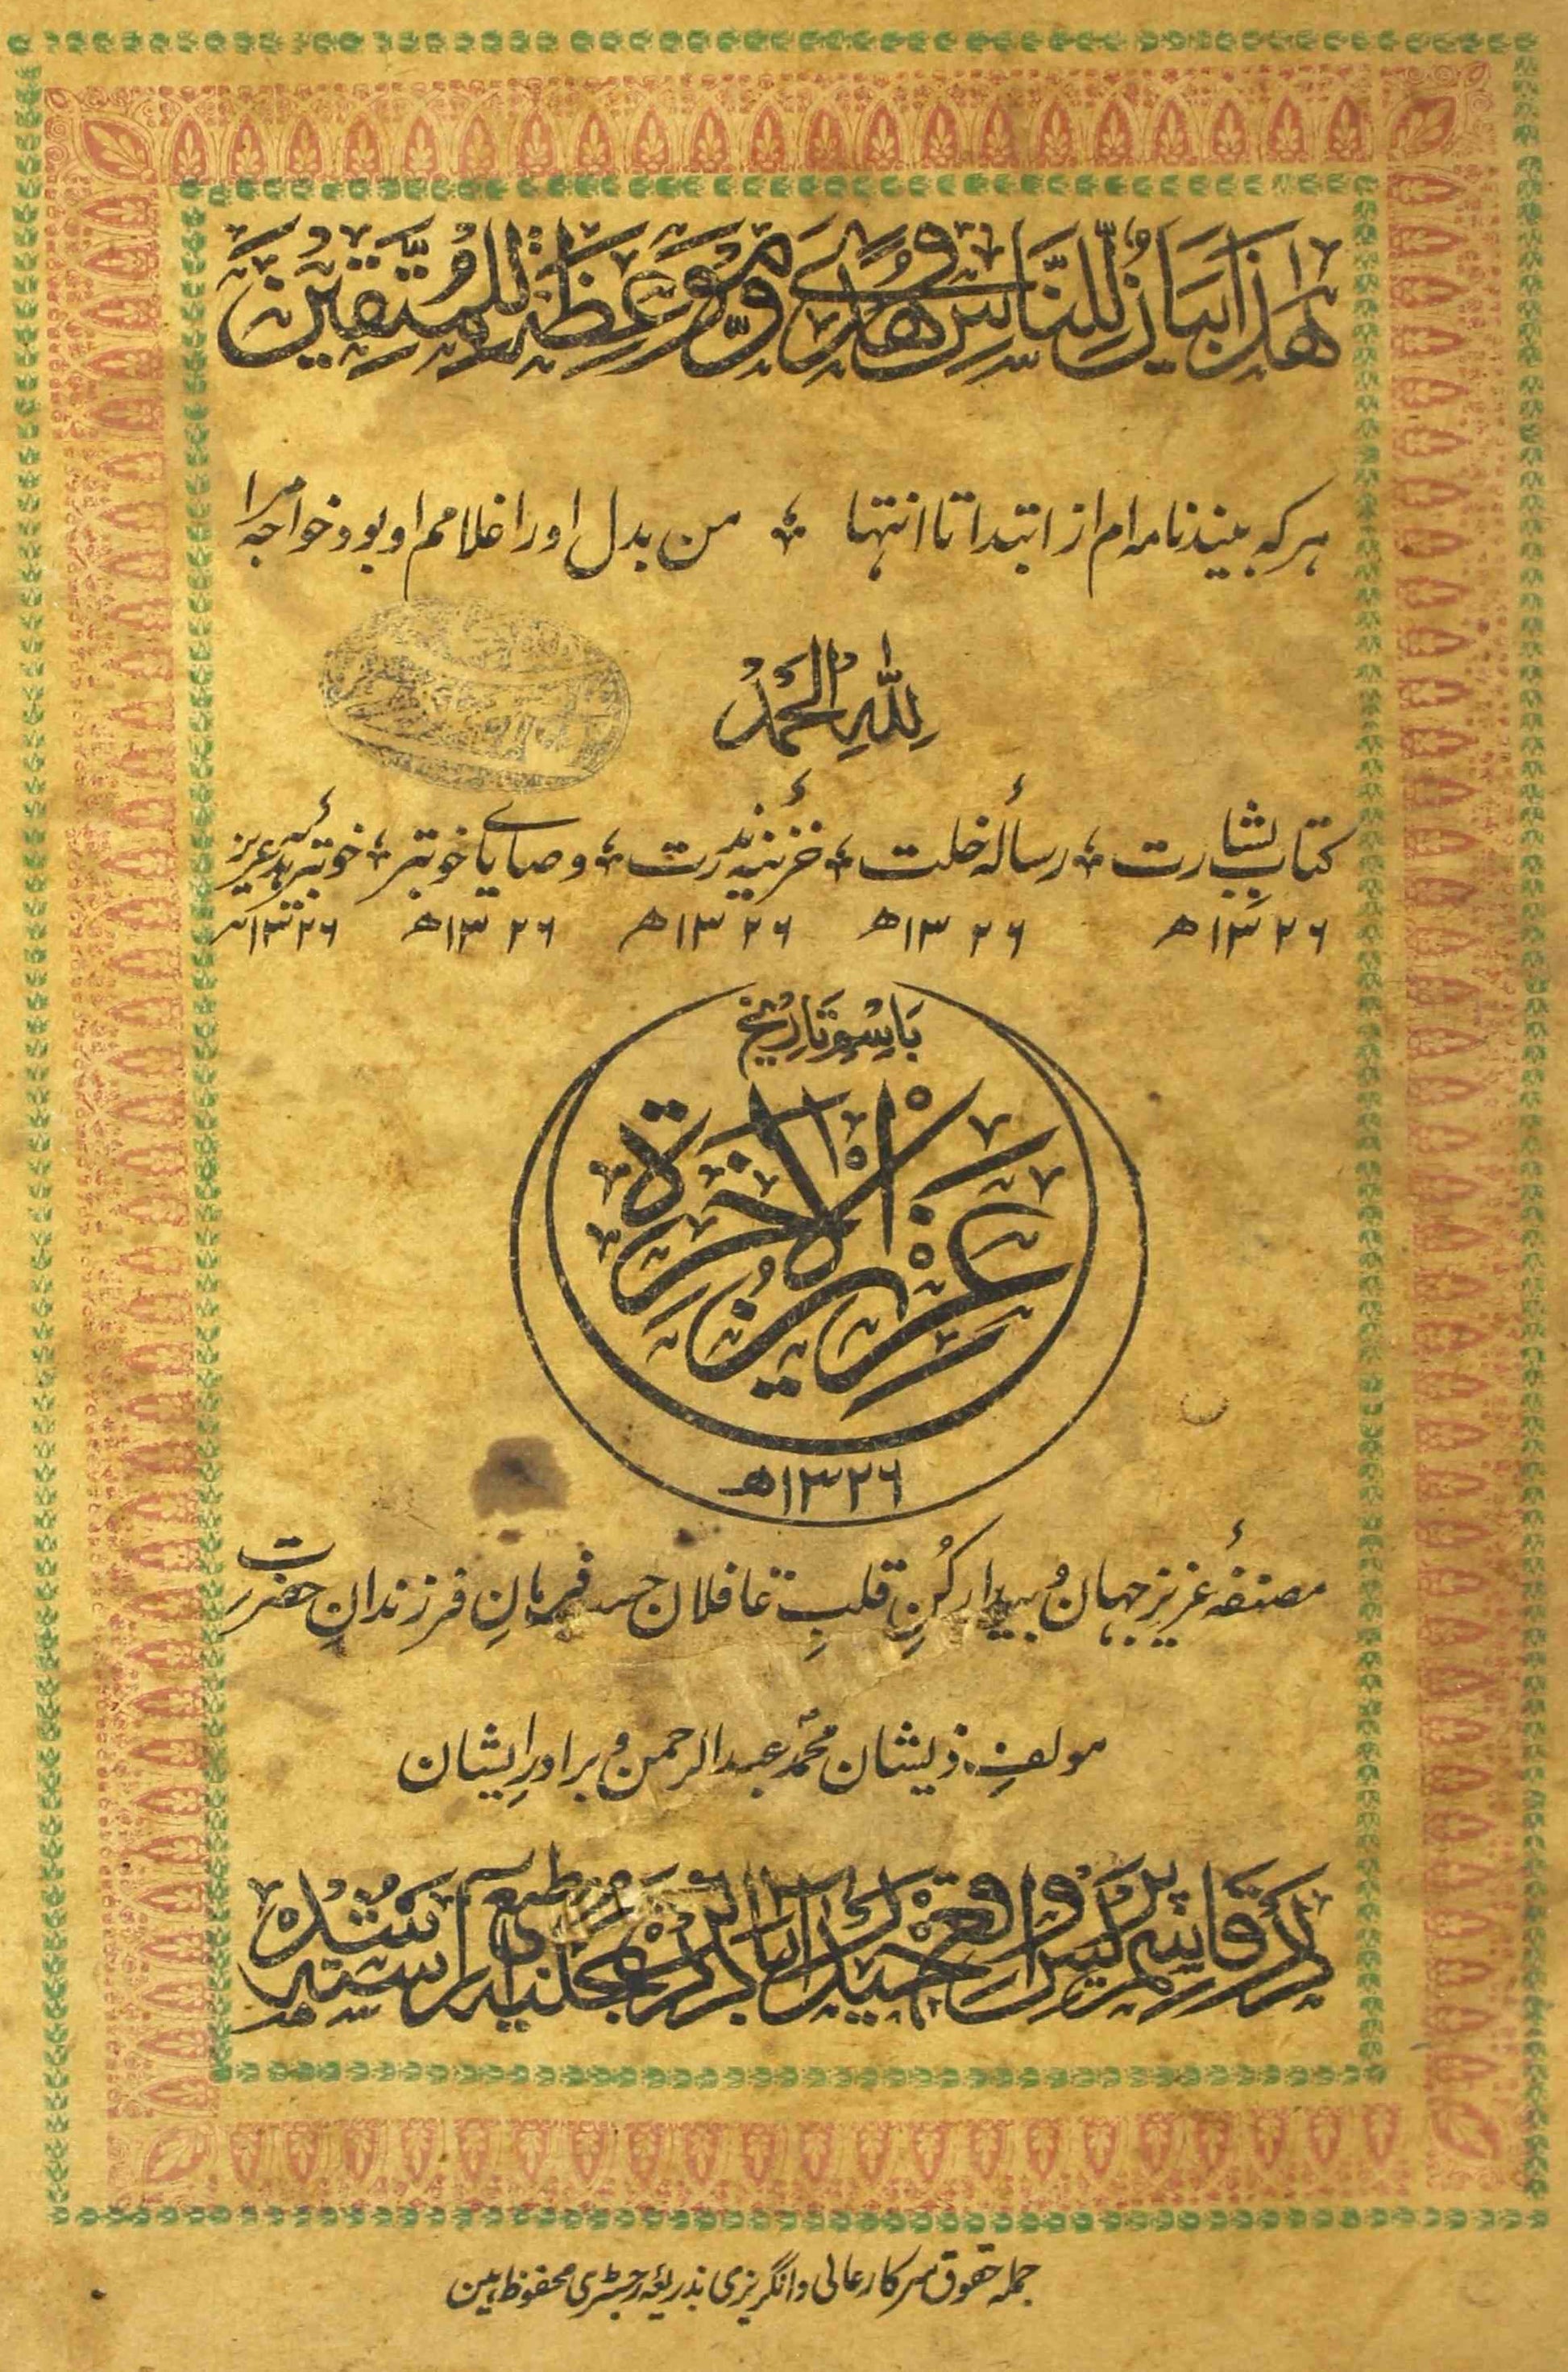 هٰذَا بَيَانٌ لِّلنَّاسِ وَهُدًى وَّمَوْعِظَةٌ لِّلْمُتَّقِيْنَ
هر که بیند نامه ام از ابتدا تا انتها ؛ من بدل او را غلامم او بود خواجه مرا
لِلّٰهِ الْحَمْدُ
کتابِ بشارت ؛ رسالهٔ خلت ؛ خزینهٔ ندرت ؛ وصایای خوبتر ؛ خوبتر هدیهٔ عزیز
۱۳۲۶ھ ۱۳۲۶ھ ۱۳۲۶ھ ۱۳۲۶ھ ۱۳۲۶ھ
بَاِسْمِ تَارِیْخ
عَزِیْزُ الْاٰخِرَة
۱۳۲۶ھ
مصنفهٔ عزیز جهان و بیدار کُنِ قلبِ غافلان حسب فرمانِ فرزندانِ حضرت
مولفِ ذیشان محمد عبد الرحمن و برادرِ ایشان
در قاسم پریس واقع حیدرآباد دکن مطبع آراسته شده
جمله حقوق سرکار عالی و انگریزی بذریعہ رجسٹری محفوظ ہین